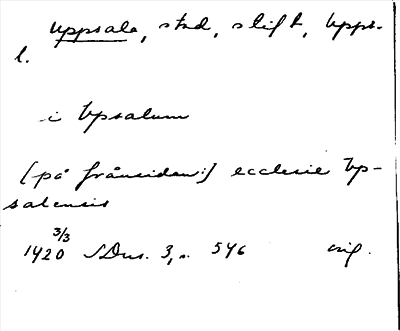 Uppsala, stad, stift, Uppl.
l.
i Vpsalum
[på frånsidan:] ecclesie Vp-
salensis
1420 3/3 SDns. 3, s. 546 orig.